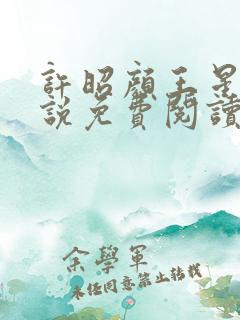 許昭顏王星
說免費閱讀
余學軍
未經同意禁止轉載